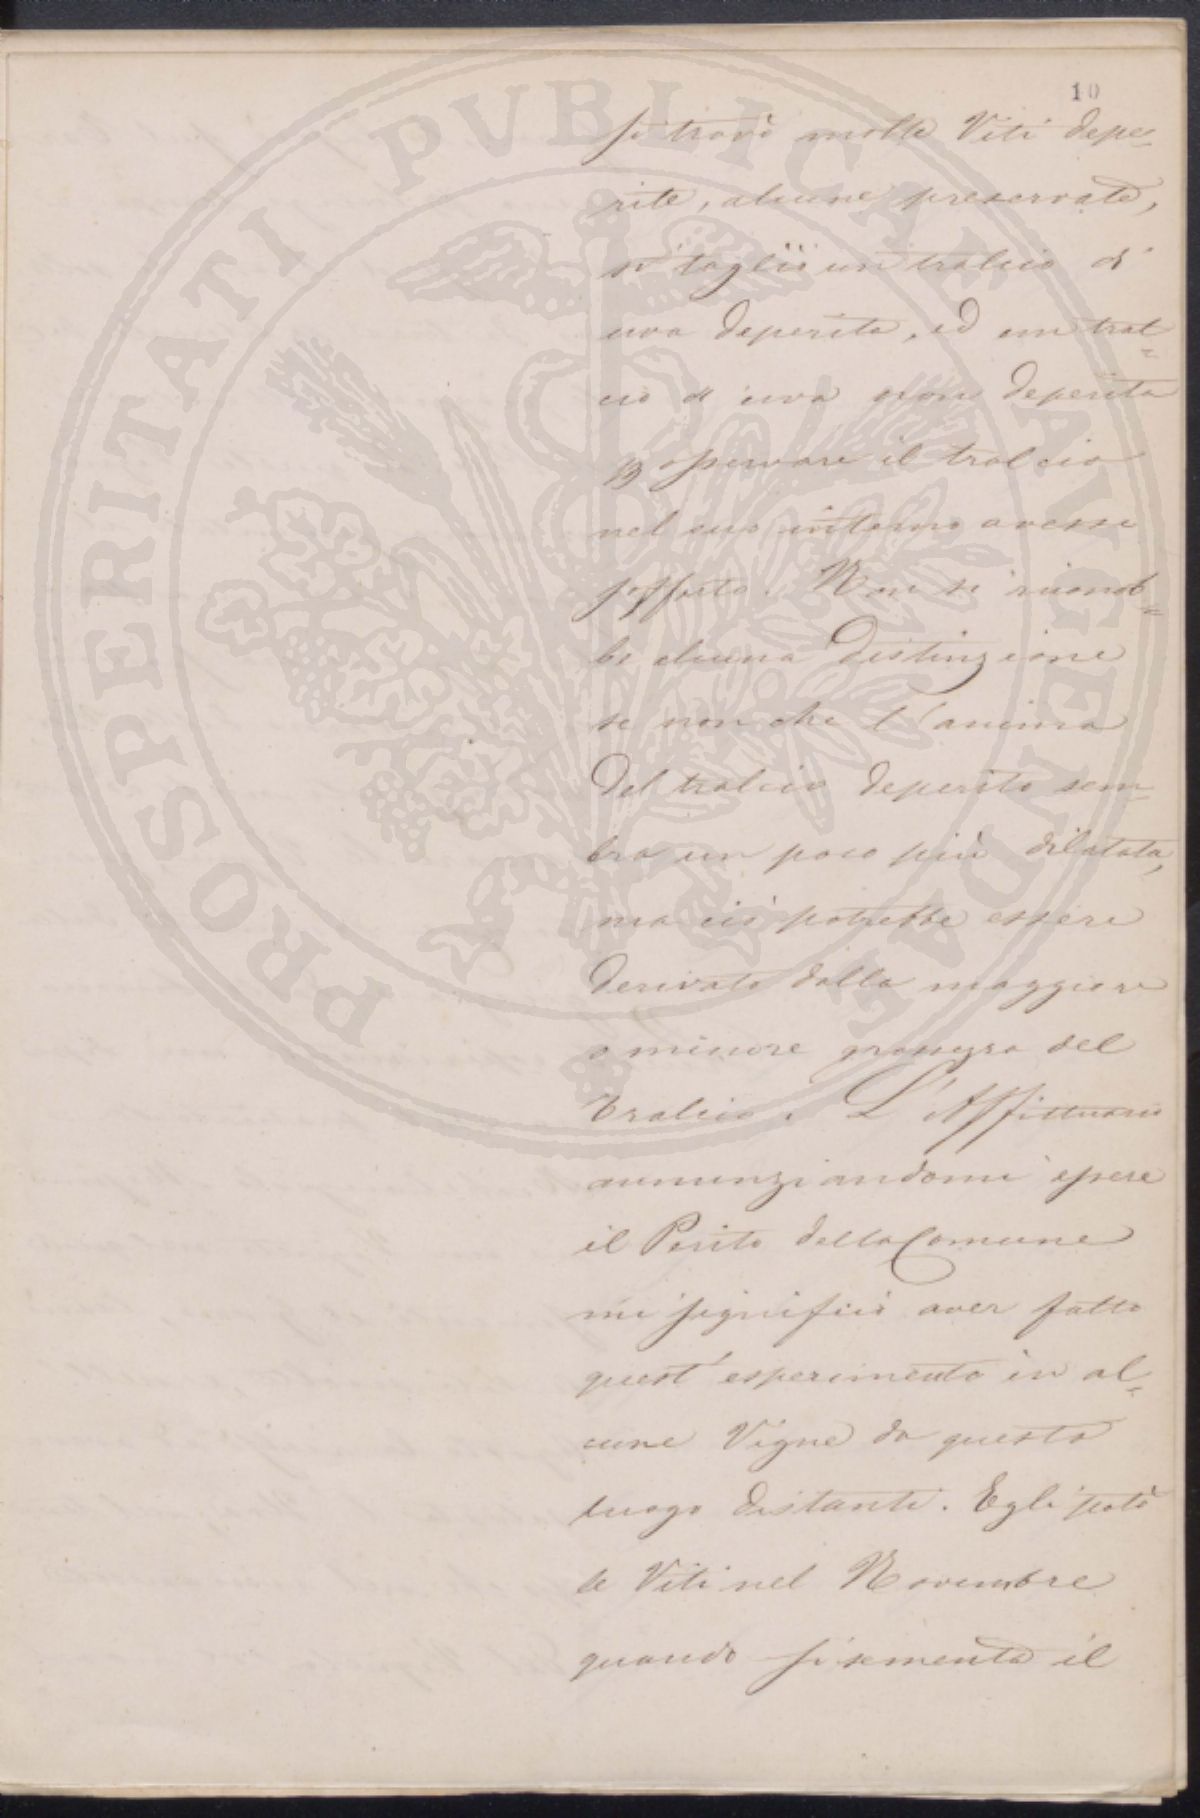 10
si trovò molte Viti depe=
rite, alcune preservate,
si tagliò un tralcio d'
uva deperita, ed un tral=
cio d'uva non deperita
osservare il tralcio
nel suo interno avesse
sofferto. Non si riconob=
be alcuna distinzione
se non che l'anima
del tralcio deperito sem=
bra un poco più dilatata,
ma ciò potrebbe essere
derivato dalla maggiore
o minore grossezza del
tralcio. L'Affittuario
annunziandomi essere
il Perito della Comune
mi significò aver fatto
quest'esperimento in al=
cune Vigne da questo
luogo distanti. Egli potò
le Viti nel Novembre
quando si sementa il
PROSPERITATI PVBLICAE AVGENDAE